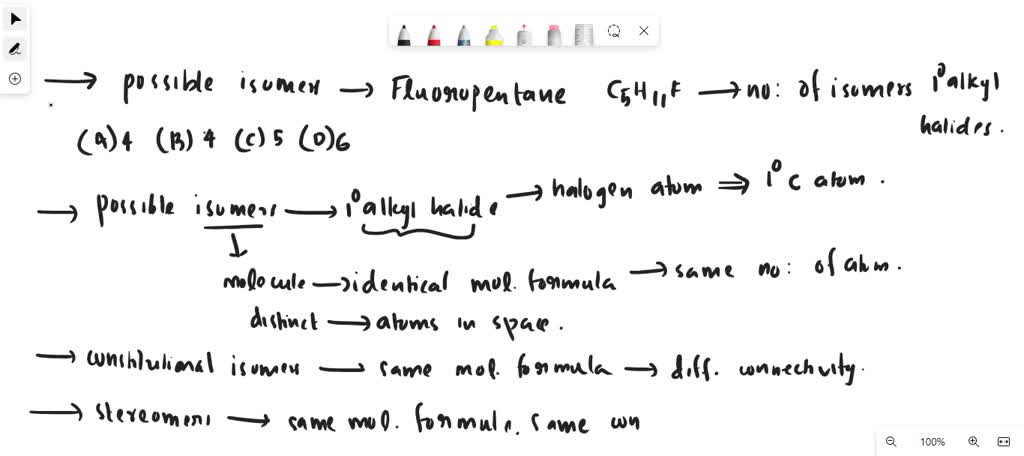 → possible isomers → Fluoropentane C5H11F → no: of isomers 1° alkyl halides.
(A) 4 (B) 4 (C) 5 (D) 6
→ possible isomers → 1° alkyl halide → halogen atom ⇒ 1° C atom.
↓
molocule → identical mol. formula → same no: of atom.
distinct → atoms in space.
→ constitutional isomers → same mol. formula → diff. connectivity.
→ stereomers → same mol. formula. same con
100%